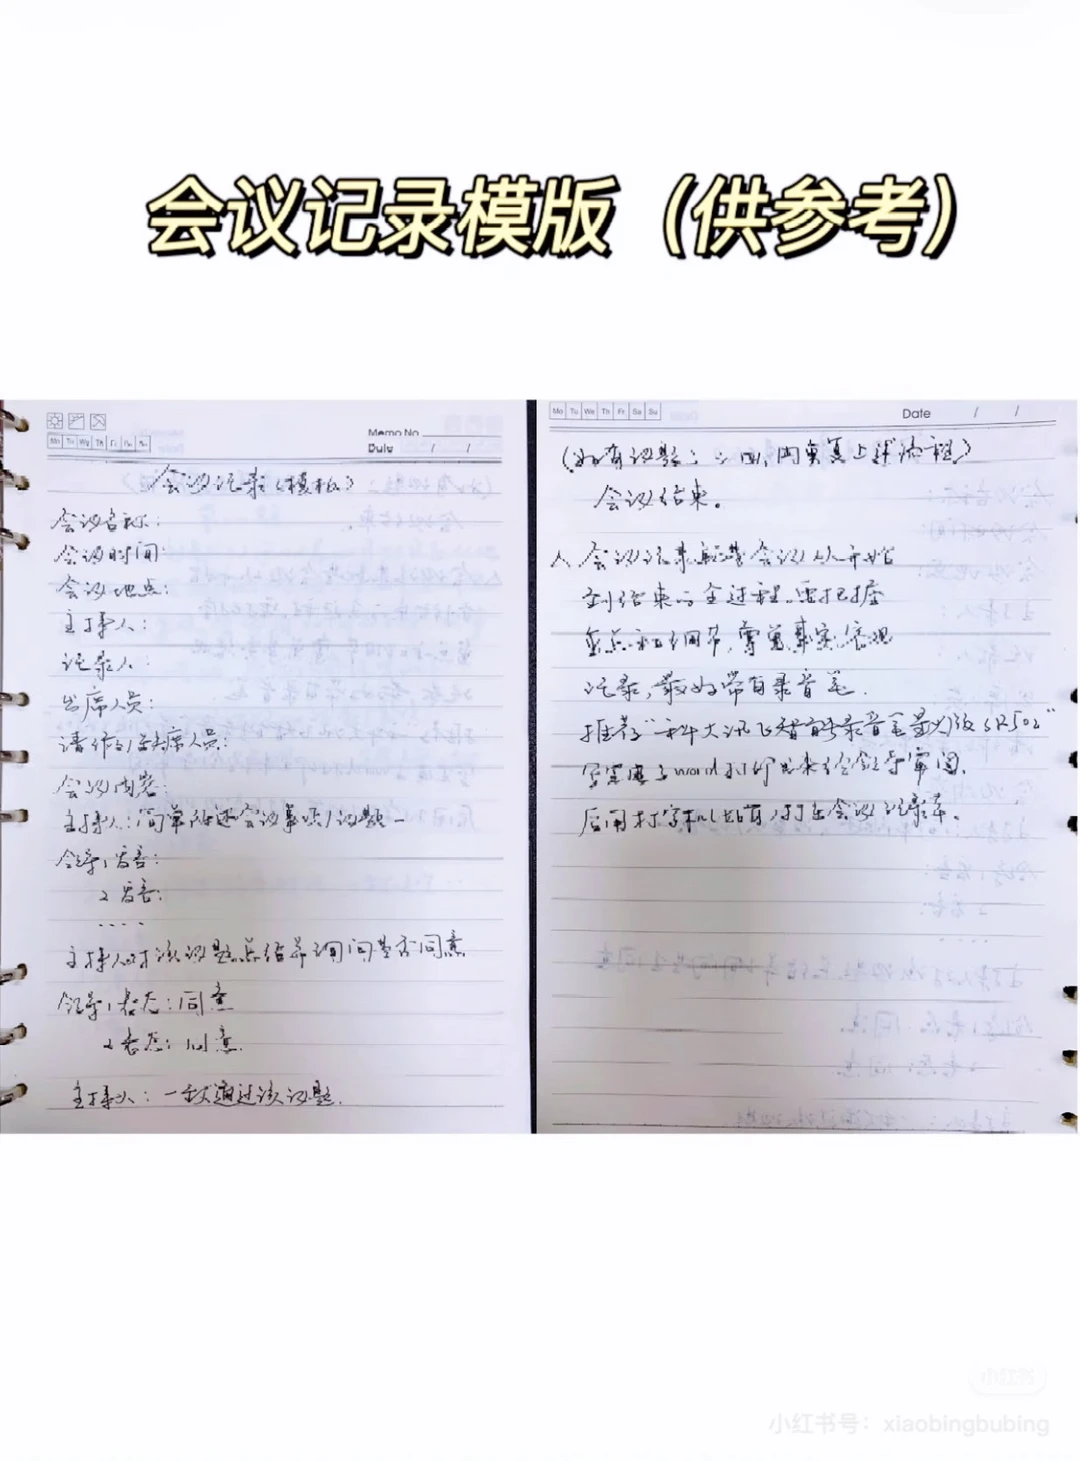 会议记录模版（供参考）
Mo Tu We Th Fr Sa Su
Memo No.
Date / /
会议记录（模板）
会议名称：
会议时间：
会议地点：
主持人：
记录人：
出席人员：
请假/缺席人员：
会议内容：
主持人：简单阐述会议事项/议题一
领导1发言：
2发言：
....
主持人对该议题总结并询问是否同意
领导1表态：同意
2表态：同意.
主持人：一致通过该议题.
Mo Tu We Th Fr Sa Su
Date / /
（如有议题二、三、四，同重复上述流程）
会议结束。
会议记录 会议从开始
到结束的全过程。要把握
重点和细节，尊重事实，客观
记录，最好带有录音笔.
推荐“科大讯飞智能录音笔 SR502”
写完后 word打印出来给领导审阅，
后用打字机 打在会议记录本。
小红书
小红书号：xiaobingbubing